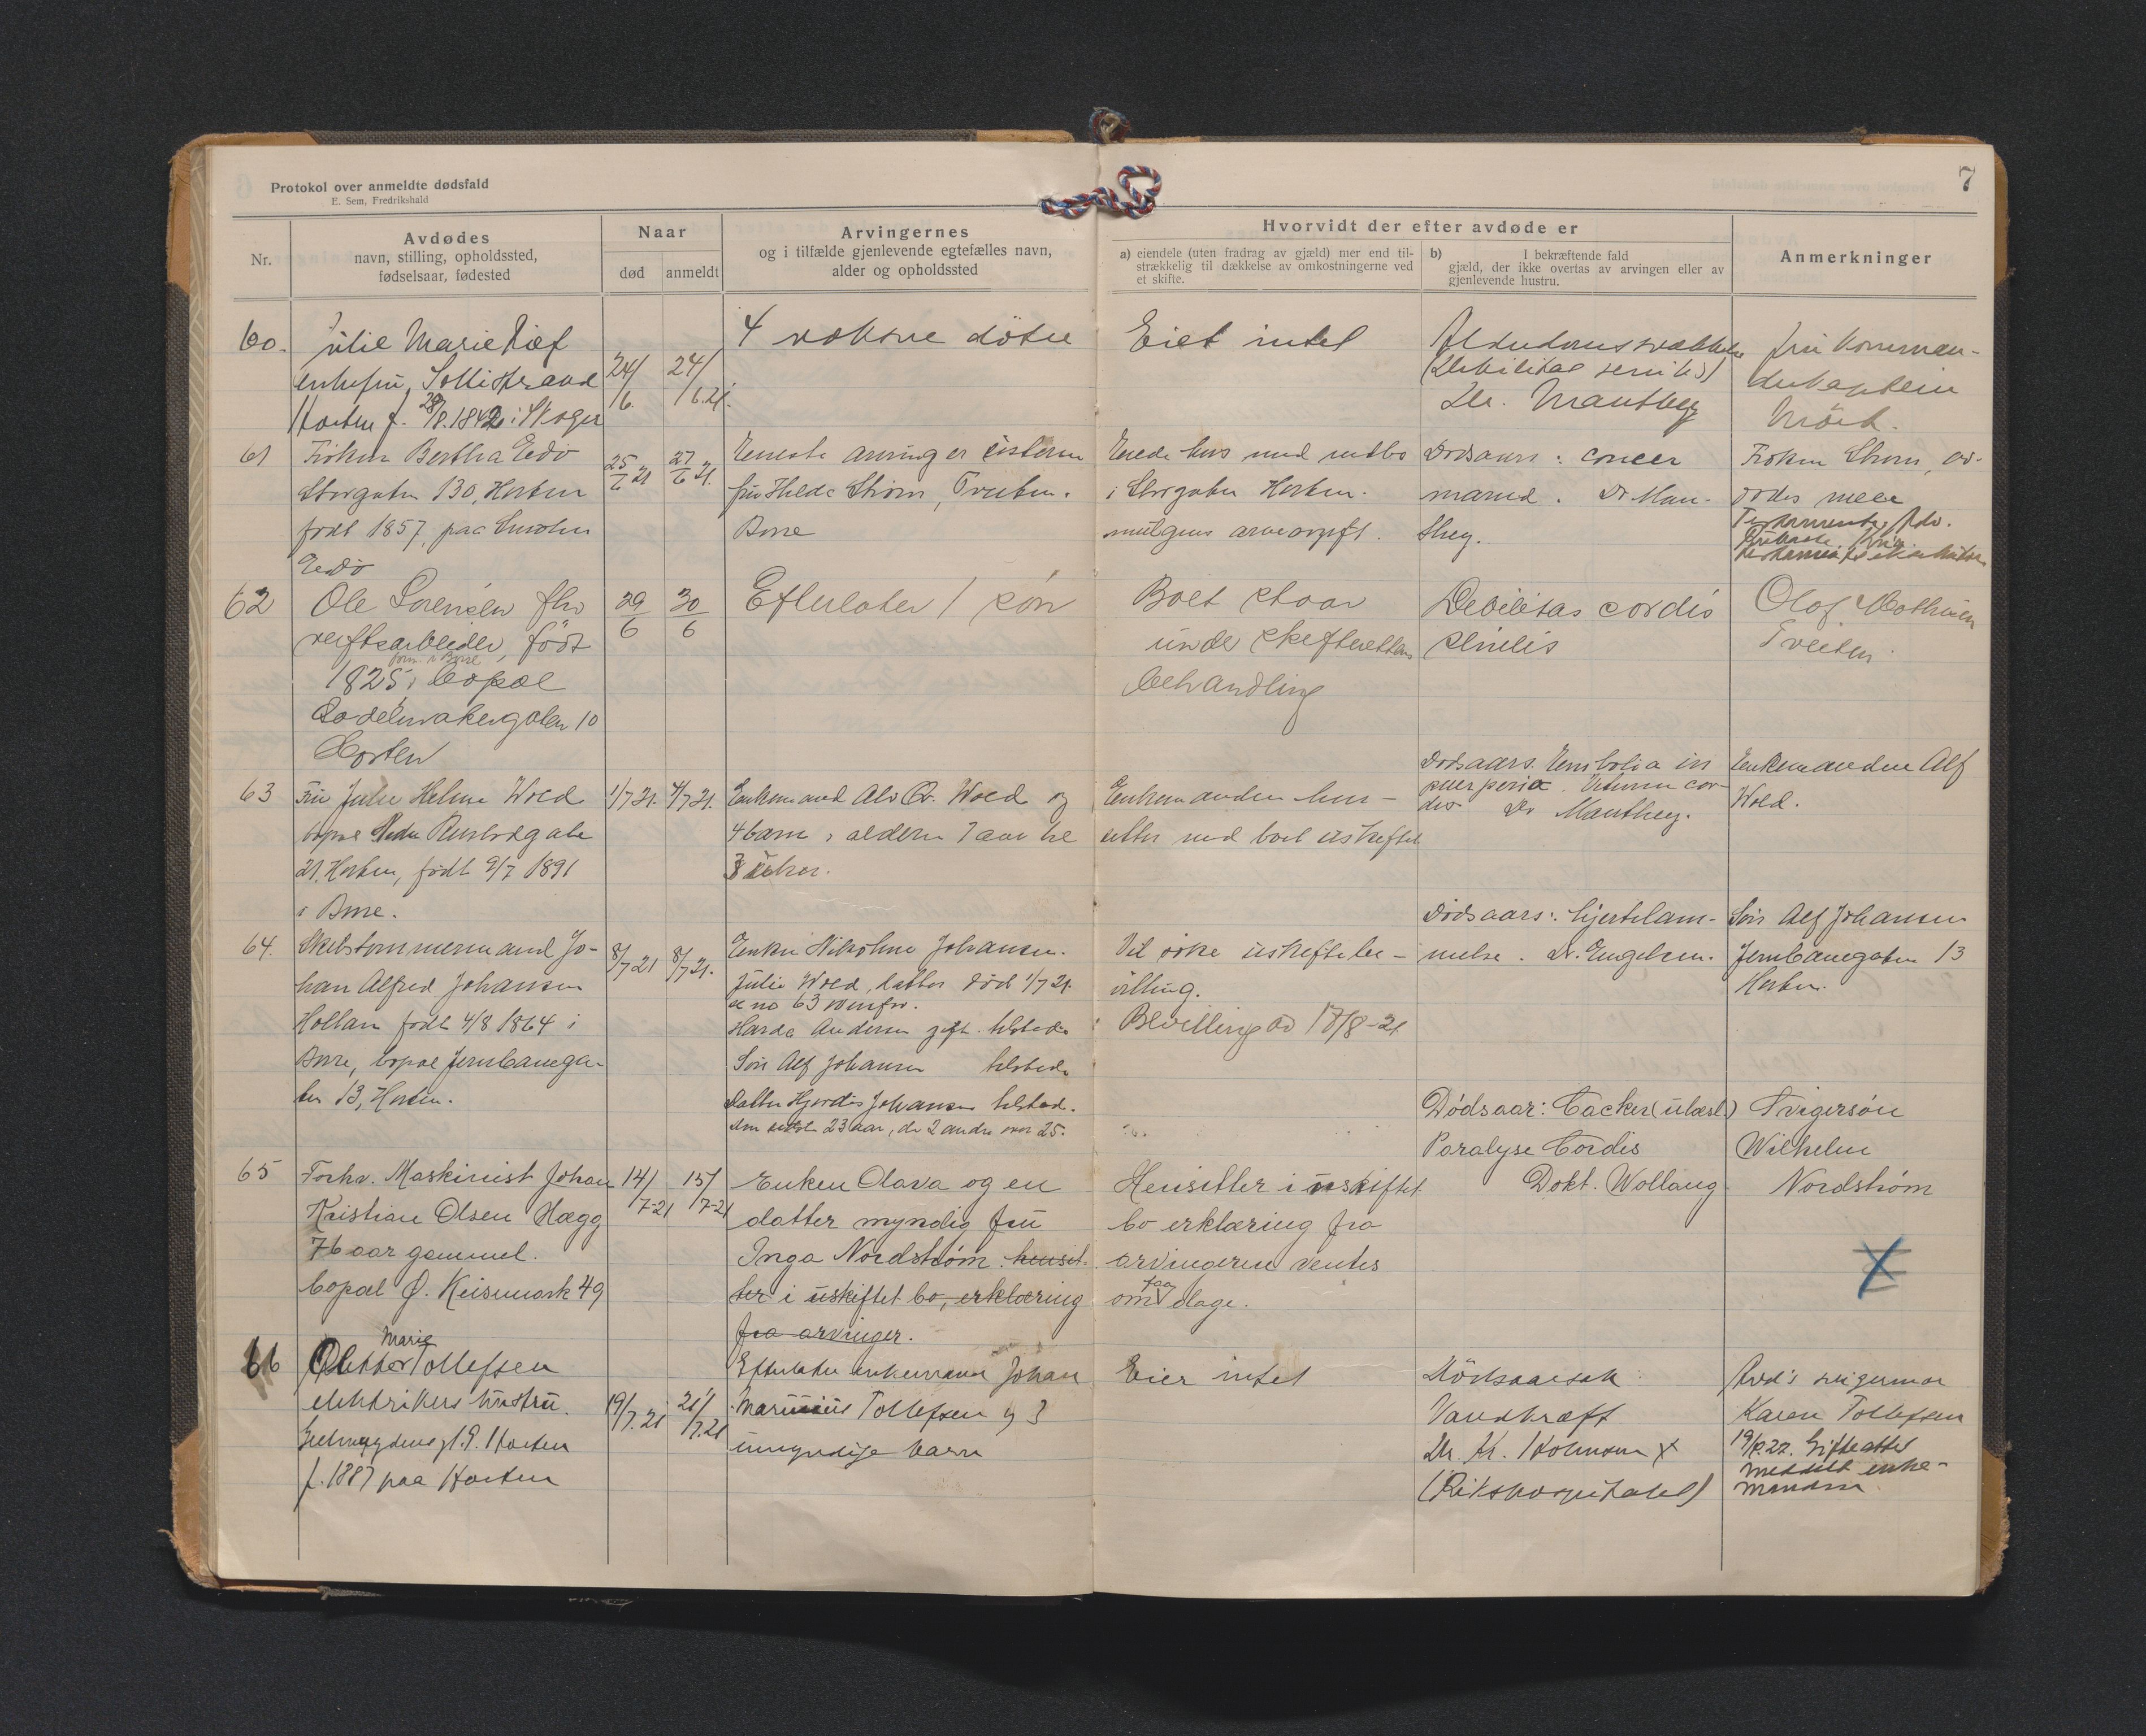 Protokol over anmeldte dødsfald
E. Sem, Fredrikshald
7
Nr.
Avdødes
navn, stilling, opholdssted,
fødselsaar, fødested
Naar
død
anmeldt
Arvingernes
og i tilfælde gjenlevende egtefælles navn,
alder og opholdssted
Hvorvidt der efter avdøde er
a) eiendele (uten fradrag av gjæld) mer end til-
strækkelig til dækkelse av omkostningerne ved
et skifte.
b) I bekræftende fald
gjæld, der ikke overtas av arvingen eller av
gjenlevende hustru.
Anmerkninger
60.
Julie Marie
enkefru,
Horten f. 28/8.1842 i Skoger
24/6.
24/6.21.
4 voksne døtre
Eiet intet
Alderdomssvakhet
(Debilitas senilis)
Dr. Manthey
fru Komman-
dørkaptein
Mörk.
61
Frøken Bertha Edø
Storgaten 130, Horten
født 1857, paa Smølen
Edø
25/6 21
27/6 21.
Eneste arving er søsteren
fru Hilda Strøm, Tveiten.
Borre
Eiede hus med indbo
i Storgaten Horten.
muligens arveavgift.
Dødsaars: cancer
mamd. Dr Man-
they.
Frøken Strøm, av-
dødes niece
62
Ole Sorensen fhv
verftsarbeider, født
1825 i Borre bopæl
Sadelmakergaten 10
Horten
29/6
30/6
Efterlater 1 søn
Boet staar
under skifterettens
behandling
Debilitas cordis
senilis
Olof Mathisen
Tveiten
63
Fru Julie Helene Wold
bopæl Nedre
21. Horten, født 9/7 1891
i Borre.
1/7 21.
4/7 21.
Enkemand Alv Chr. Wold og
4 barn i alderen 7 aar til
3 uker.
Enkemanden hen-
sitter med boet uskiftet
Dødsaars. Embolia in
puerperia. Vitium cor-
dis Dr Manthey.
Enkemanden Alf
Wold.
64.
Skibstømmermand Jo-
han Alfred Johansen
Hollan født 4/8 1864 i
Borre, bopæl Jernbanega-
ten 13, Horten.
8/7 21
8/7 21.
Enken Nikoline Johansen.
Julie Wold, datter død 1/7 21.
se no 63 ovenfor.
Harda Andersen gift. tilstede
Søn Alf Johansen tilstede
Datter Hjørdis Johansen tilstede.
den sidste 23 aar, de 2 andre over 25.
Vil søke uskiftebe-
villing.
Bevilling av 17/8-21
Dødsaars: hjertelam-
melse. Dr. Engelsen.
Søn Alf Johansen
Jernbanegaten 13
Horten.
65
Forhv. Maskinist Johan
Kristian Olsen Hægg
76 aar gammel.
bopæl Ø. Keisemark 49
14/7-21
15/7-21
Enken Olava og en
datter myndig fru
Inga Nordstrøm. hensit-
ter i uskiftet bo, erklæring
fra arvinger.
Hensitter i uskiftet
bo erklæring fra
arvingeren ventes
om faa dage.
Dødsaar: Cacker (ulæsl.)
Paralyse Cordis
Dokt. Wollang
Svigersøn
Wilhelm
Nordstrøm
66
Olette Marie Tollefsen
elektrikers hustru.
f. 1887 paa Horten
19/7.21
21/7.21
Efterlater enkemann Johan
Marinius Tollefsen og 3
umyndige barn
Eier intet
Dödsaarsak:
Vandkræft
Dr. Kr. Holmsen
(Rikshospitalet)
Avd's svigermor
Karen Tollefsen
19/8.22. Gifteattest
meddelt enke-
manden